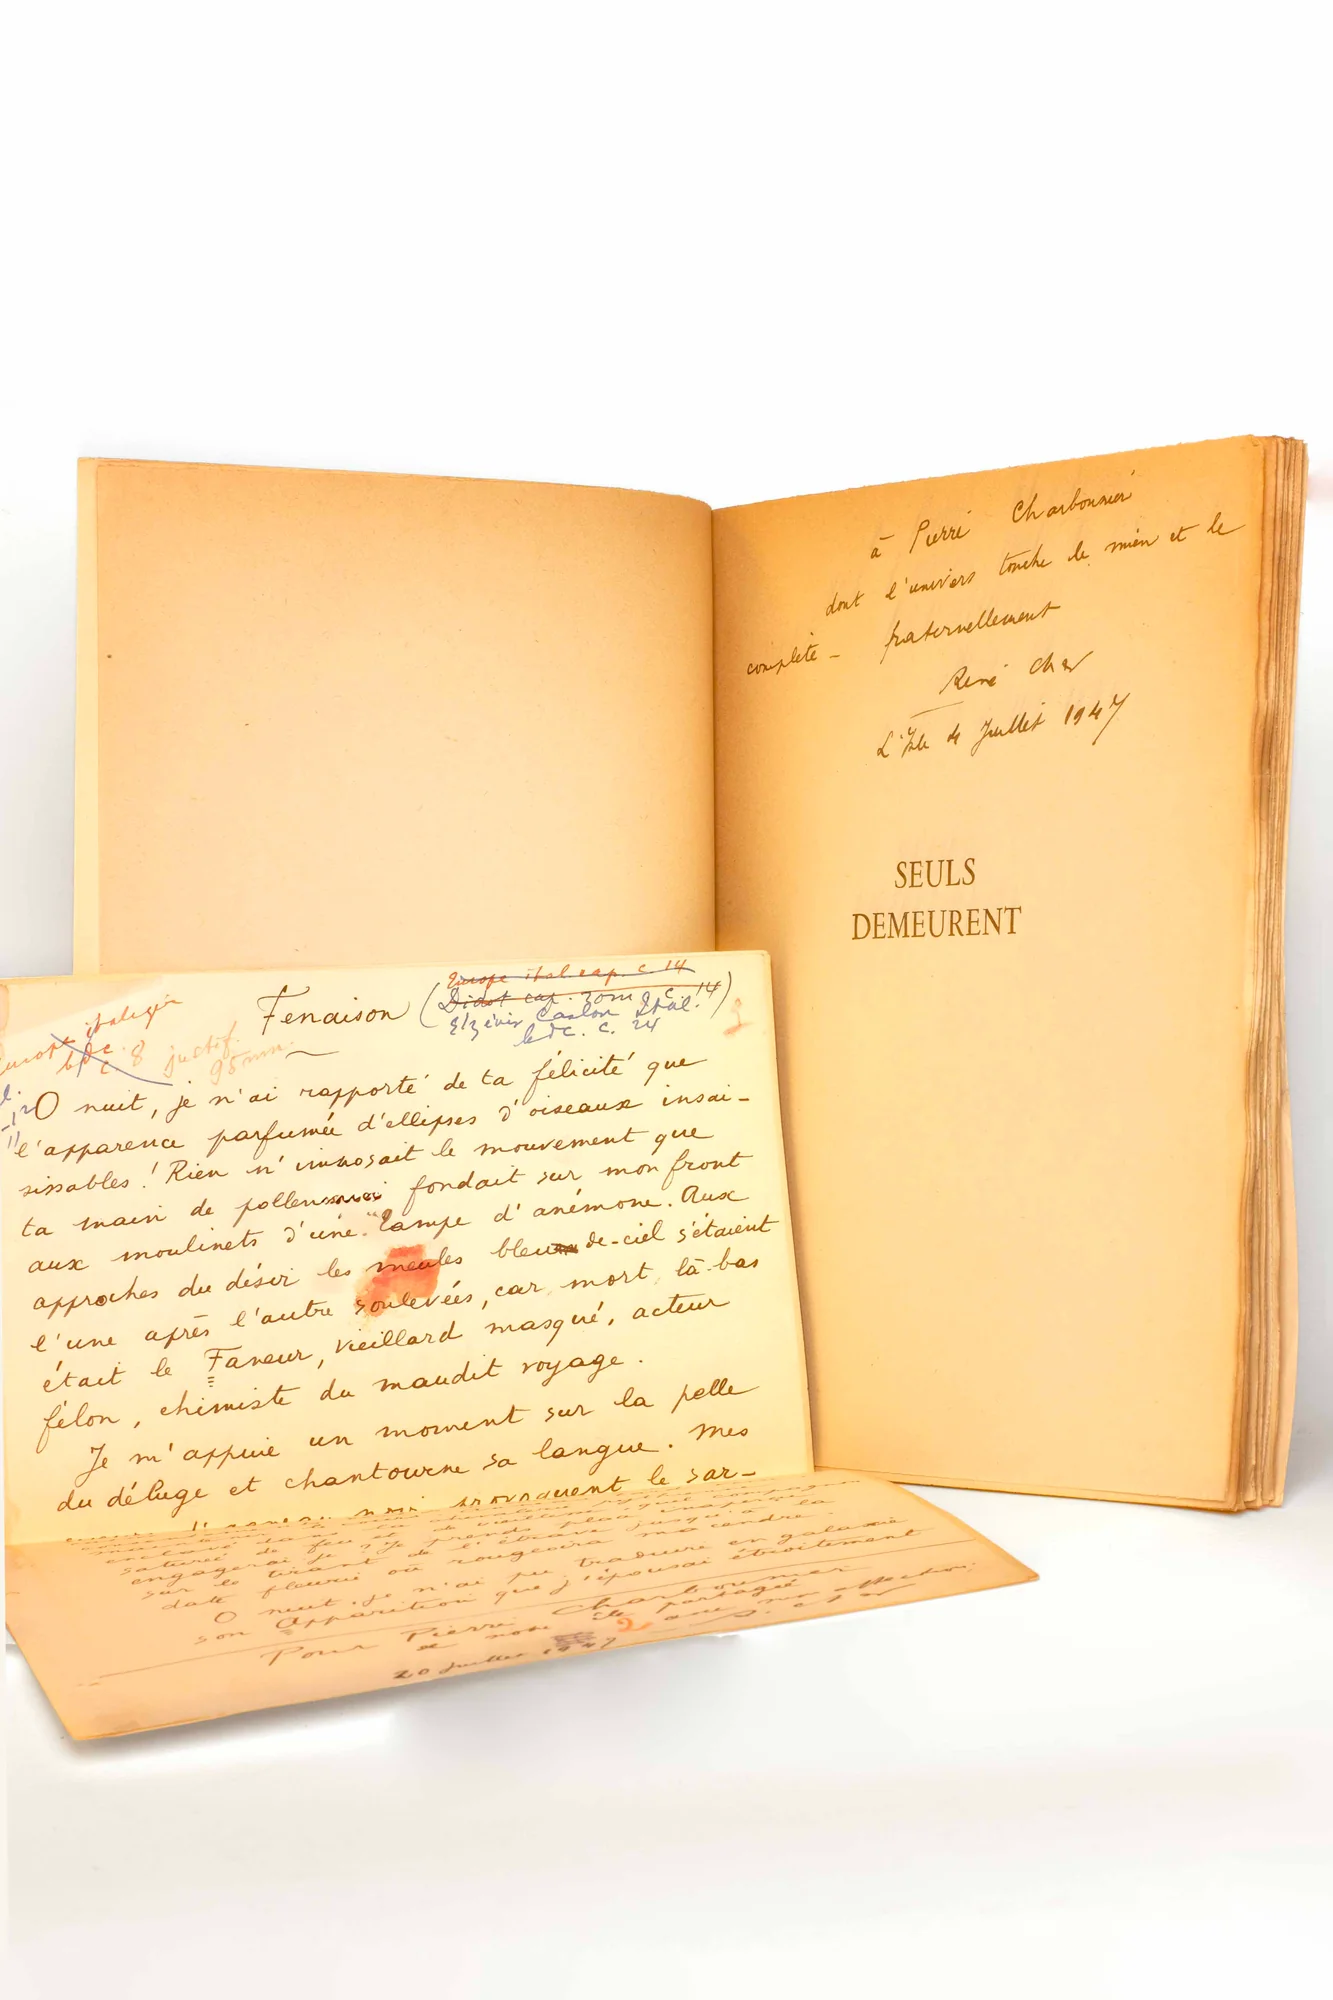 à Pierre Charbonnier
dont l'univers touche le mien et le
complète - fraternellement
René Char
L'Isle 4 Juillet 1947
SEULS
DEMEURENT
Fenaison (
Europe ital cap. c. 14
Didot cap. rom c. 14)
Elzévir Caslon Ital.
bdc. c. 24
italique
bdc. c 8 justif.
95 mm.
O nuit, je n'ai rapporté de ta félicité que
l'apparence parfumée d'ellipses d'oiseaux insai-
sissables! Rien n'imposait le mouvement que
ta main de pollen fondait sur mon front
aux moulinets d'une lampe d'anémone. Aux
approches du désir les meules bleu de-ciel s'étaient
l'une après l'autre soulevées, car mort là-bas
était le Faneur, vieillard masqué, acteur
félon, chimiste du maudit voyage.
Je m'appuie un moment sur la pelle
du déluge et chantourne sa langue. Mes
provoquent le sar-
saturée de feu et de vieillesse
engagerai-je? Je prends
sur le tirant de l'étrave jusqu'à la
date fleurie où rougeoira ma cendre.
O nuit, je n'ai pu traduire en galaxie
son Apparition que j'épousai étroitement
Pour Pierre Charbonnier
de notre été partagé
2 avec mon affection,
20 juillet 1947